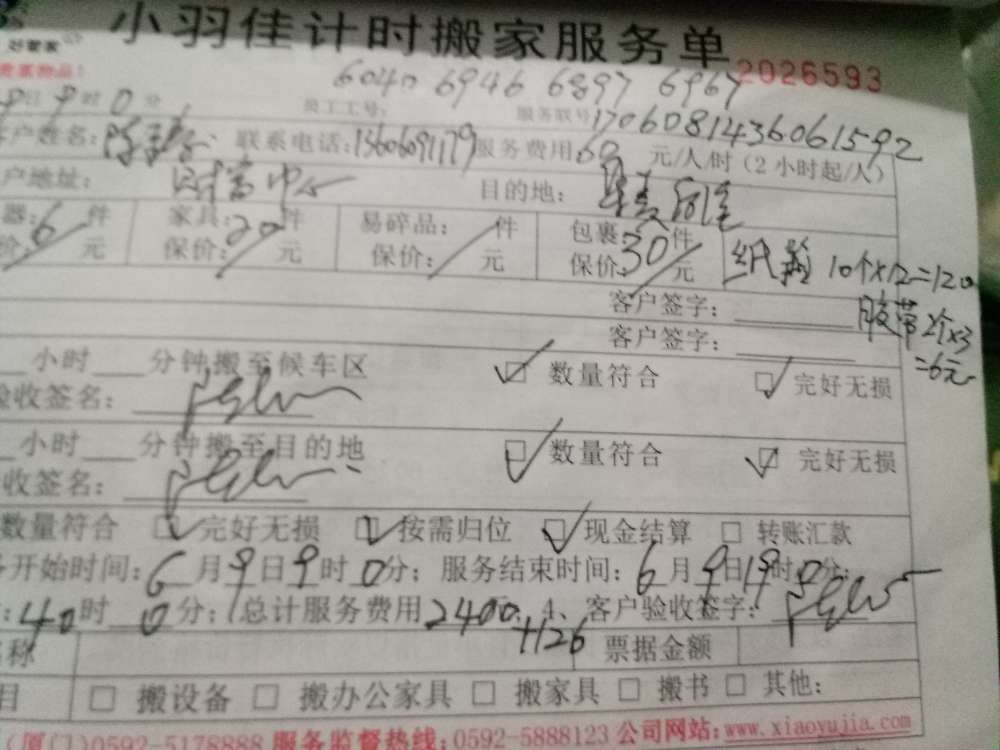 小羽佳计时搬家服务单
好管家
贵重物品！
6040 6946 6897 6967
2026593
9日9时0分 员工工号： 服务联号：1706081436061592
客户姓名： 联系电话：13606091179 服务费用60元/人/时（2小时起/人）
户地址：财富中心 目的地：
器：6件 家具：20件 易碎品： 件 包裹：30件
价： 元 保价： 元 保价： 元 保价： 元
纸箱10个×12=120
客户签字：
胶带2个×3
=6元
客户签字：
小时 分钟搬至候车区 数量符合 完好无损
验收签名：
小时 分钟搬至目的地 数量符合 完好无损
收签名：
数量符合 完好无损 按需归位 现金结算 转账汇款
开始时间：6月9日9时0分；服务结束时间：6月9日19时0分；
：40时0分；总计服务费用2400 +126；4、客户验收签字：
名称 票据金额
目 搬设备 搬办公家具 搬家具 搬书 其他：
（厦门）0592-5178888 服务监督热线：0592-5888123 公司网站：www.xiaoyujia.com